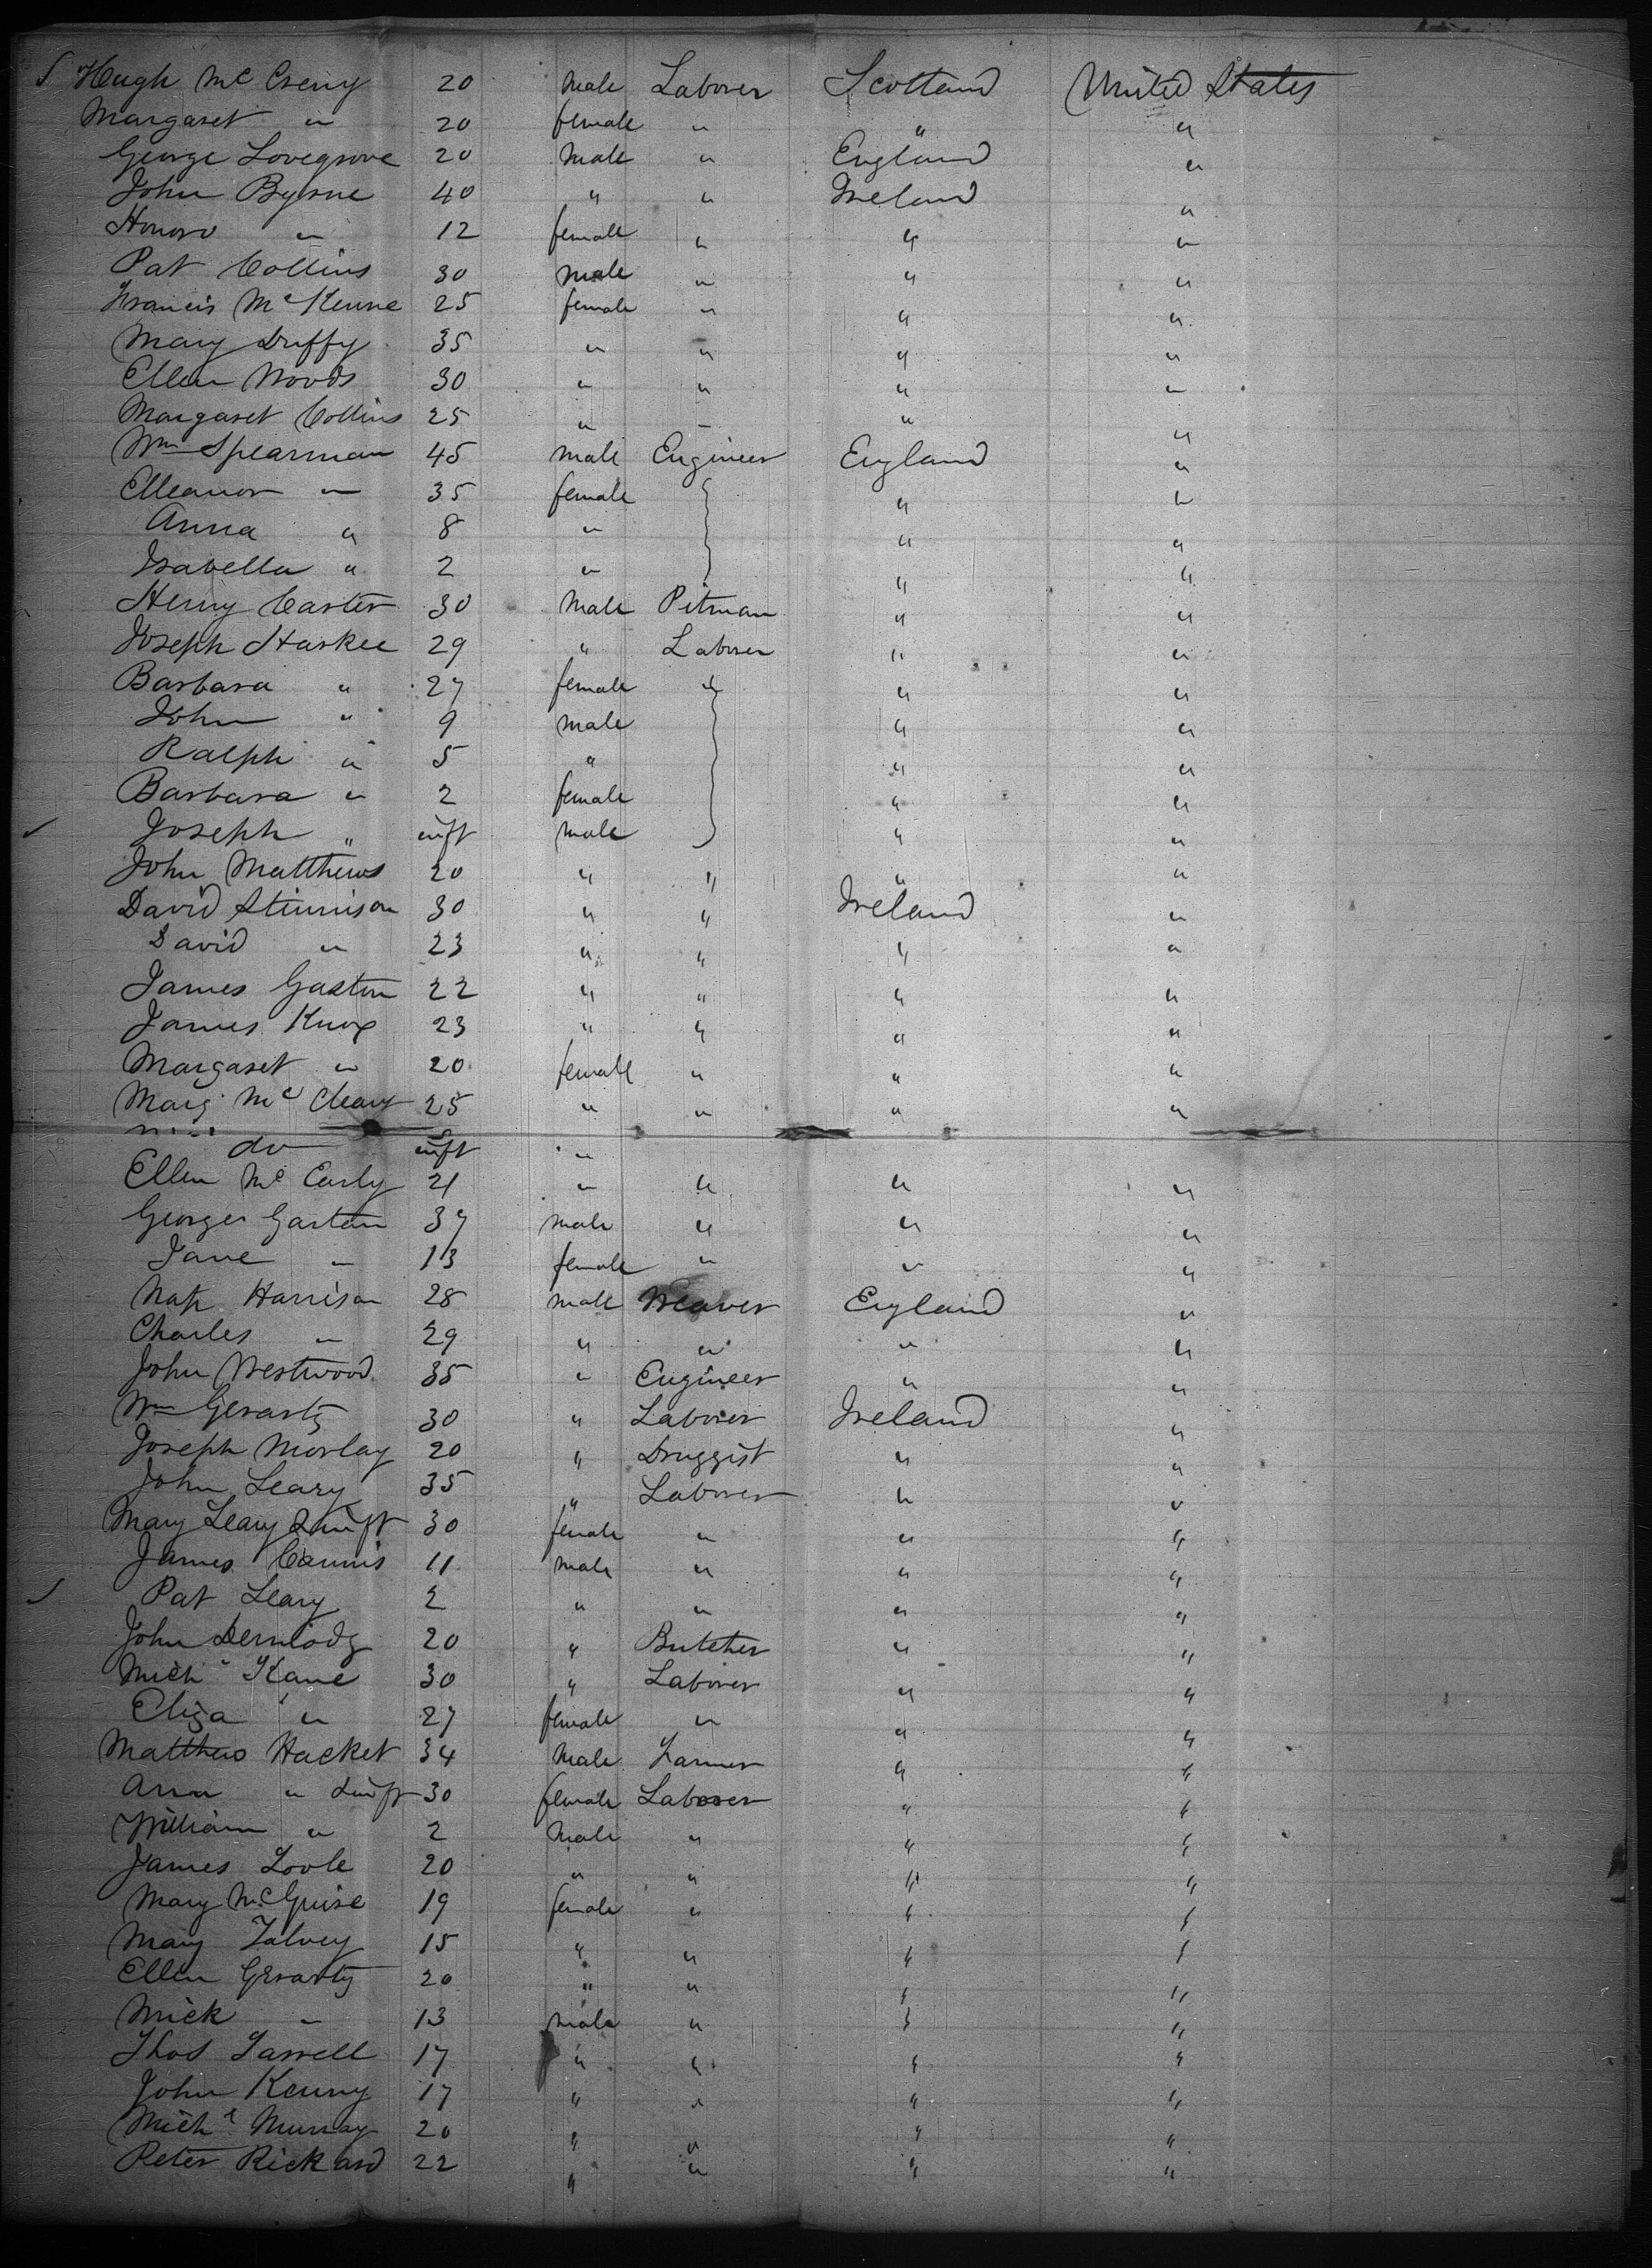 Hugh Mc Creny 20 Male Laborer Scotland United States
Margaret " 20 female " " "
George Lovegrove 20 Male " England "
John Byrne 40 " " Ireland "
Honoro " 12 female " " "
Pat Collins 30 Male " " "
Francis McKenne 25 female " " "
Mary Duffy 35 " " " "
Ellen Woods 30 " " " "
Margaret Collins 25 " " " "
Wm Spearman 45 Male Engineer England "
Elleanor " 35 female " "
Anna " 8 " " "
Isabella " 2 " " "
Henry Carter 30 Male Pitman " "
Joseph Haskee 29 " Laborer " "
Barbara " 27 female " " "
John " 9 Male " "
Ralph " 5 " " "
Barbara " 2 female " "
Joseph " inft male " "
John Matthews 20 " " " "
David Stinnison 30 " " Ireland "
David " 23 " " " "
James Gaston 22 " " " "
James Knox 23 " " " "
Margaret " 20 female " " "
Marg Mc Cleary 25 " " " "
do inft "
Ellen Mc Early 21 " " " "
George Gaston 37 male " " "
Jane " 13 female " " "
Nap Harrison 28 male Weaver England "
Charles " 29 " " " "
John Westwood 35 " Engineer " "
Wm Gerarty 30 " Laborer Ireland "
Joseph Morlay 20 " Druggist " "
John Leary 35 " Laborer " "
Mary Leary & inft 30 female " " "
James Cannis 11 male " " "
Pat Leary 2 " " " "
John Dermody 20 " Butcher " "
Mich Kane 30 " Laborer " "
Eliza " 27 female " " "
Matthew Hacket 34 Male Farmer " "
Ann " & inft 30 female Laborer " "
William " 2 Male " " "
James Toole 20 " " " "
Mary McGuire 19 female " " "
Mary Falvey 15 " " " "
Ellen Gerarty 20 " " " "
Mick " 13 male " " "
Thos Farrell 17 " " " "
John Kenny 17 " " " "
Michl Murray 20 " " " "
Peter Rickard 22 " " " "